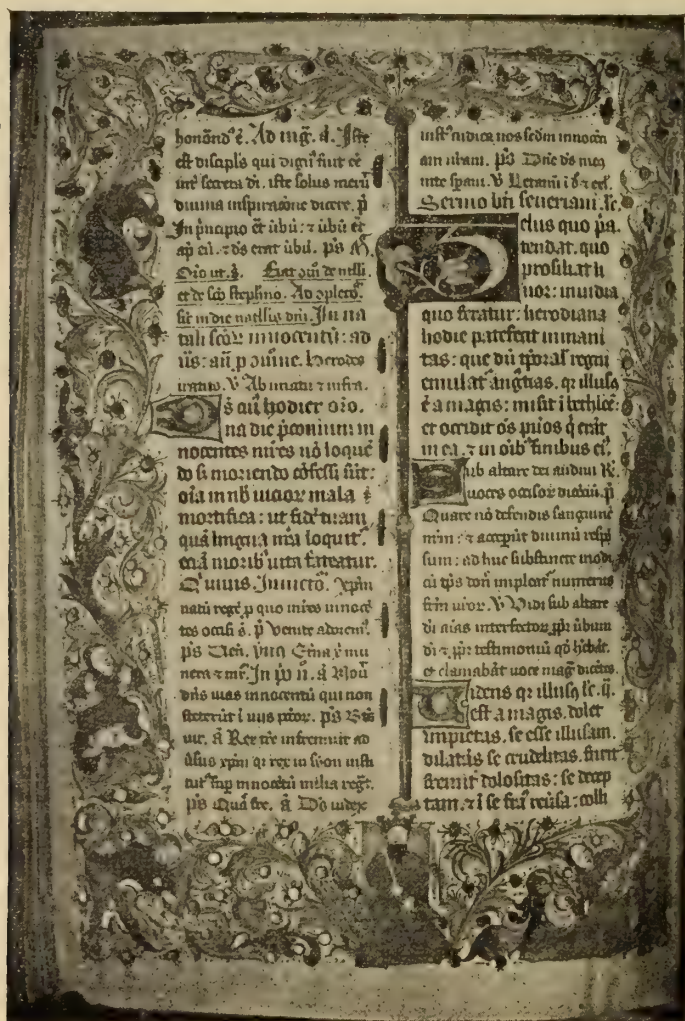 honorand⁹ ē. Ad mag̃. ā. Iste
est discipls qui dign⁹ fuit eē
int̃ secreta di. iste solus meruit
diuina inspiracōne dicere. p̃
In p̃ncipio ẽt ũbũ: ⁊ ũbũ ẽt
ap̃ cū. ⁊ ds erat ũbũ. p̃s
Oĩo ut. Fiat ɔm̃ de natł.
et de sc̃o steph̃no. Ad ɔpletõ.
fit in die natłis dnĩ. In na
tali sc̃oꝝ innocentũ: ad
ũs: añ. p oĩmne. herodes
iratus. ꝟ Ab imatu ⁊ infra.
s cũ hodier oĩo.
na die p̃conium in
nocentes mr̃es nõ loquē
do s; moriendo cõfessi sũt:
oĩa in nob̃ uicioꝝ mala
mortifica: ut fidē tuam
quā lingua nr̃a loquit̃.
eciā morib⁹ uita fateatur.
Inuicto. Xp̃m
natũ regē p quo mr̃es innocē
tes occisi s̃. p̃ Venite adorem⁹.
p̃s
nera ⁊ mr̃. In p̃o n̄. ā Nou
dñs uias innocentũ qui non
steterũt ĩ uiis pcc̃oꝝ. p̃s
ā Rex tr̃e infremuit ad
ũsus xp̃m qi rex in syon insti
tut⁹ innocētũ milia regit̃.
p̃s Quā fre. ā Dõ iudex
iust⁹ iudica nos sc̃dm innocen
am nr̃am. p̃s Dñe ds me⁹
in te sp̃aui. ꝟ Letamĩ ĩ d̃
Sermo bt̃i seueriani. le.
elus quo pa.
tendat. quo
prosiliat li
uor: inuidia
quo feratur: herodiana
hodie patefecit inmani
tas: que dũ tp̃oral̃ regni
emulat̃ ang̃tias. qr illus⁹
ē a magis: misit ĩ bethleē:
et occidit õs pũos q̃ erāt
in ea. ⁊ in oĩb⁹ finibus ei⁹.
ub altare dei audiui R̃.
uoces occisoꝝ dicētiũ. p̃
Quare nõ defendis sanguinē
nr̃m: ⁊ acceperũt diuinũ respõ
sum: ad huc substinete modi
cũ tp̃s doñ impleat̃ numerus
fr̃m ur̃oꝝ. ꝟ Vidi sub altare
di aĩas interfectoꝝ ꝓpt̃ ũbum
di ⁊ ꝓpt̃ testimoniũ qõ h̃ebāt.
et clamabāt uoce mag̃ dicētes
idens qr illus⁹ le. ij.
est a magis. dolet
impietas. se esse illusam.
dilatā se crudelitas. furit
fremit dolositas: se decep
tam. ⁊ ĩ se